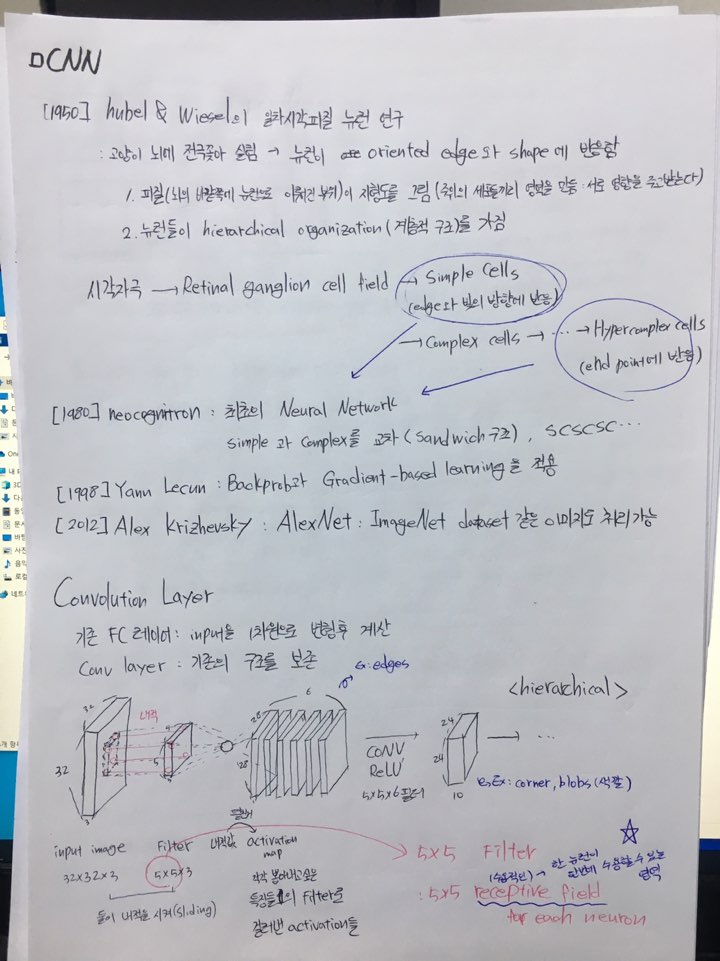 □CNN
[1950] hubel & Wiesel의 일차시각피질 뉴런 연구
: 고양이 뇌에 전극꽂아 실험 → 뉴런이 oriented edge와 shape에 반응함
1. 피질(뇌의 바깥쪽에 뉴런으로 이뤄진 부위)이 지형도를 그림 (주위의 세포들끼리 영역을 만듦 : 서로 영향을 주고받는다)
2. 뉴런들이 hierarchical organization (계층적 구조)를 가짐
시각자극 → Retinal ganglion cell field → Simple cells
(edge와 빛의 방향에 반응)
→ Complex cells → ... → Hypercomplex cells
(end point에 반응)
[1980] neocognitron : 최초의 Neural Network
simple과 complex를 교차 (sandwich 구조), SCSCSC...
[1998] Yann Lecun : Backprob과 Gradient-based learning을 적용
[2012] Alex Krizhevsky : AlexNet : ImageNet dataset 같은 이미지도 처리 가능
Convolution Layer
기존 FC 레이어 : input을 1차원으로 변형후 계산
Conv layer : 기존의 구조를 보존
ex: edges
<hierarchical>
32
내적
6
28
24
32
5
28
CONV
ReLU
5x5x6 필터
24
→ ...
3
10
Ex: corner, blobs (색깔)
필터
input image
Filter
내적값
activation map
32x32x3
5x5x3
둘이 내적을 시켜 (sliding)
각각 뽑아내고싶은
특징들의 Filter로
걸러낸 activation들
5x5 Filter
(수용적인) → 한 뉴런이 한번에 수용할 수 있는 영역
: 5x5 receptive field
for each neuron